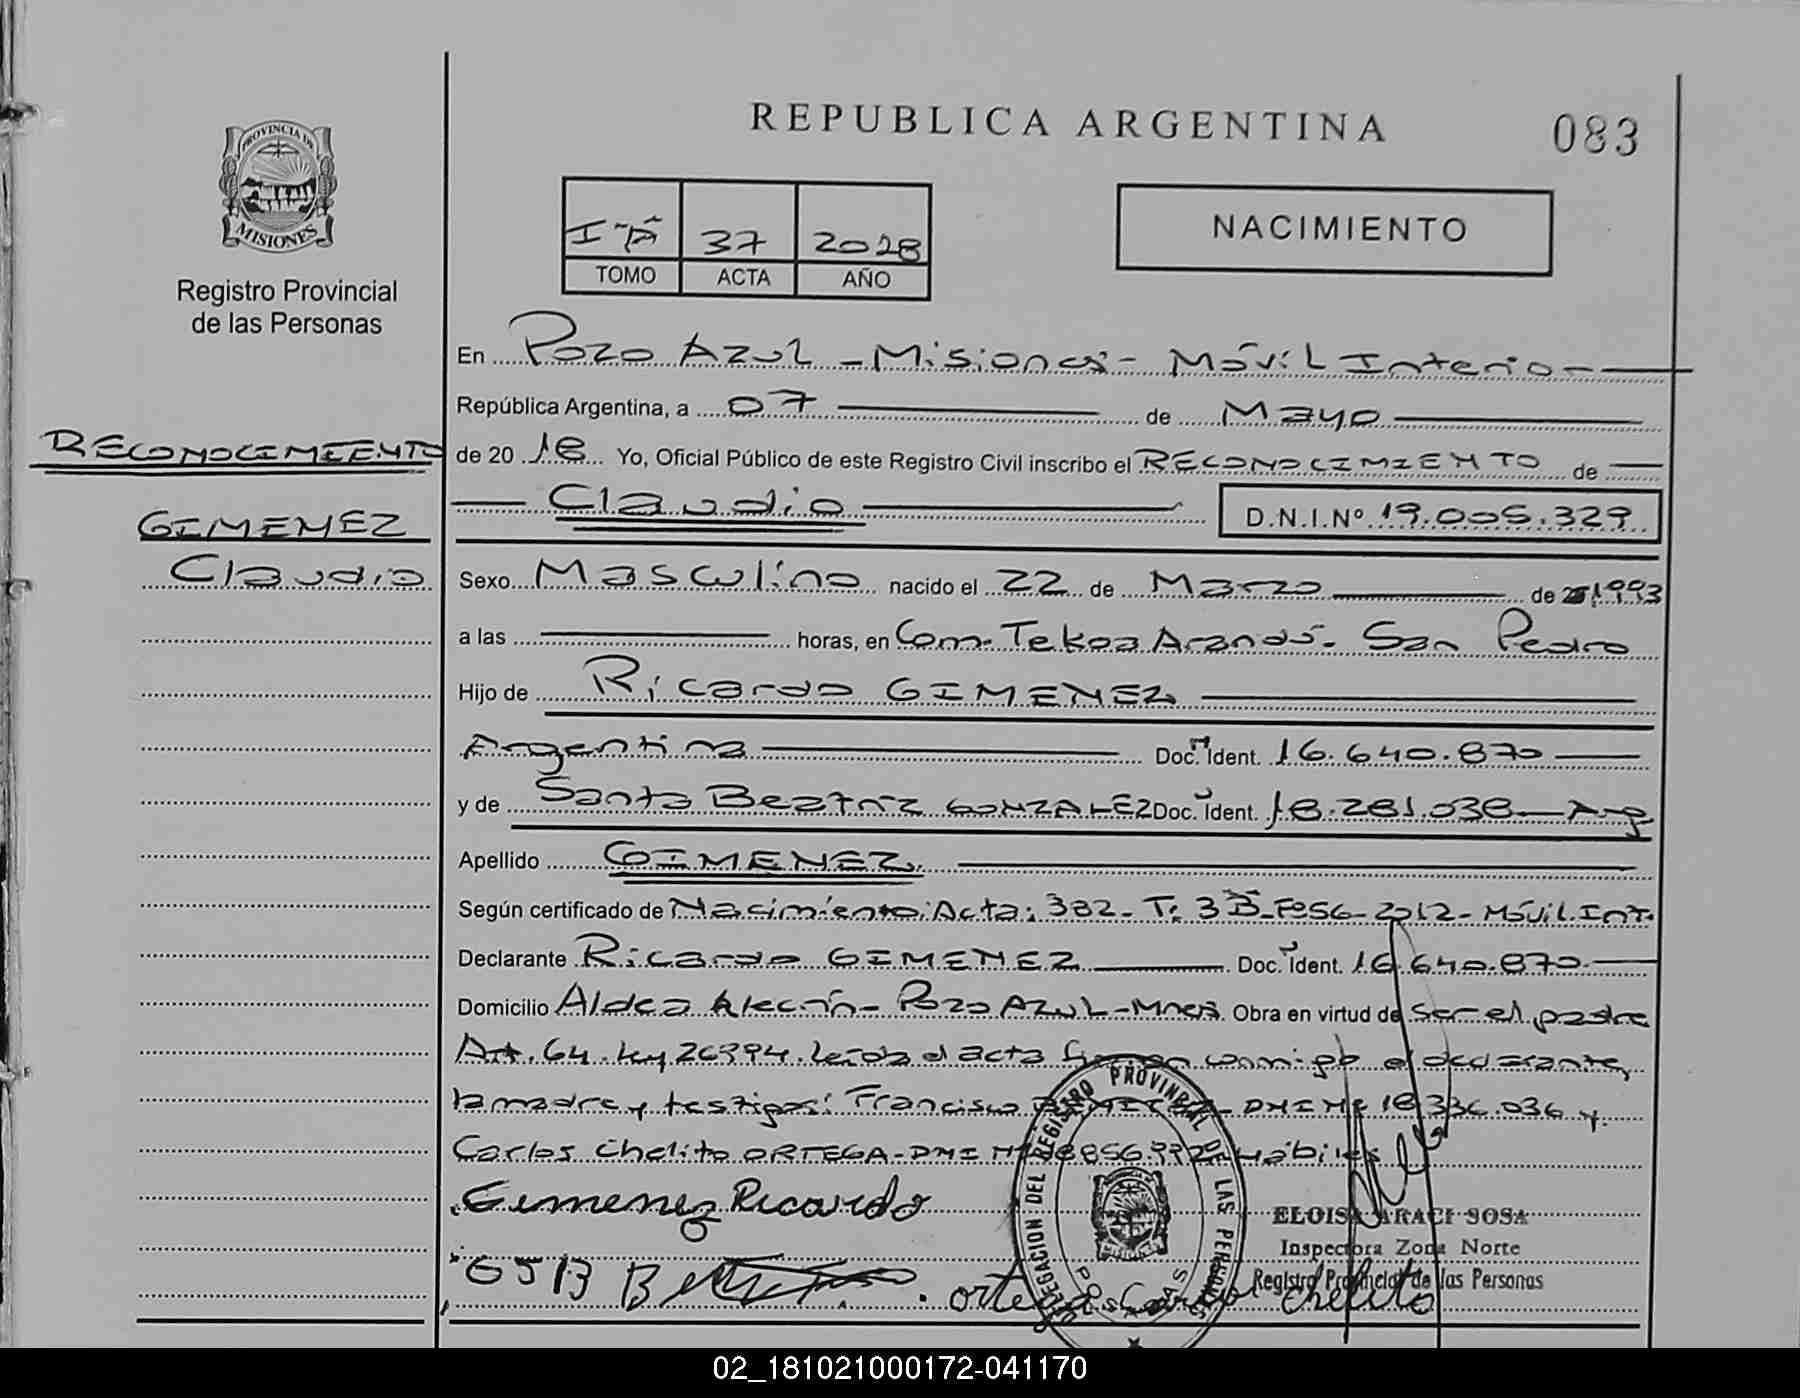 REPUBLICA ARGENTINA
083
PROVINCIA DE
MISIONES
Registro Provincial
de las Personas
37 2018
TOMO ACTA AÑO
NACIMIENTO
En Pozo Azul - Misiones - Móvil Interio
República Argentina, a 07 de Mayo
RECONOCIMIENTO
de 20 18 Yo, Oficial Público de este Registro Civil inscribo el RECONOCIMIENTO de
Claudio D.N.I.Nº 19.005.329
GIMENEZ
Claudio
Sexo Masculino nacido el 22 de Marzo de 1993
a las horas, en Com. Tekoa Arandú - San Pedro
Hijo de Ricardo GIMENEZ
Argentina Doc. Ident. 16.640.870
y de Santa Beatriz GONZALEZ Doc. Ident. 18.281.038 Arg
Apellido GIMENEZ.
Según certificado de Nacimiento: Acta: 382 - T: 3 - Fº 56 - 2012 - Móvil. Int.
Declarante Ricardo GIMENEZ Doc. Ident. 16.640.870
Domicilio Aldea Alecrín - Pozo AZUL - Mnes. Obra en virtud de ser el padre
Art. 64. Ley 26994. Leída el acta firman conmigo el declarante,
la madre y testigos: Francisco DNI Nº 18.336.036 y
Carlos Chelito ORTEGA - DNI Hábiles
Gimenez Ricardo
DELEGACION DEL REGISTRO PROVINCIAL DE LAS PERSONAS
POSADAS
MISIONES
ELOISA ARACI SOSA
Inspectora Zona Norte
Registro Provincial de las Personas
GSB
ortega Carlos chelito
02_181021000172-041170